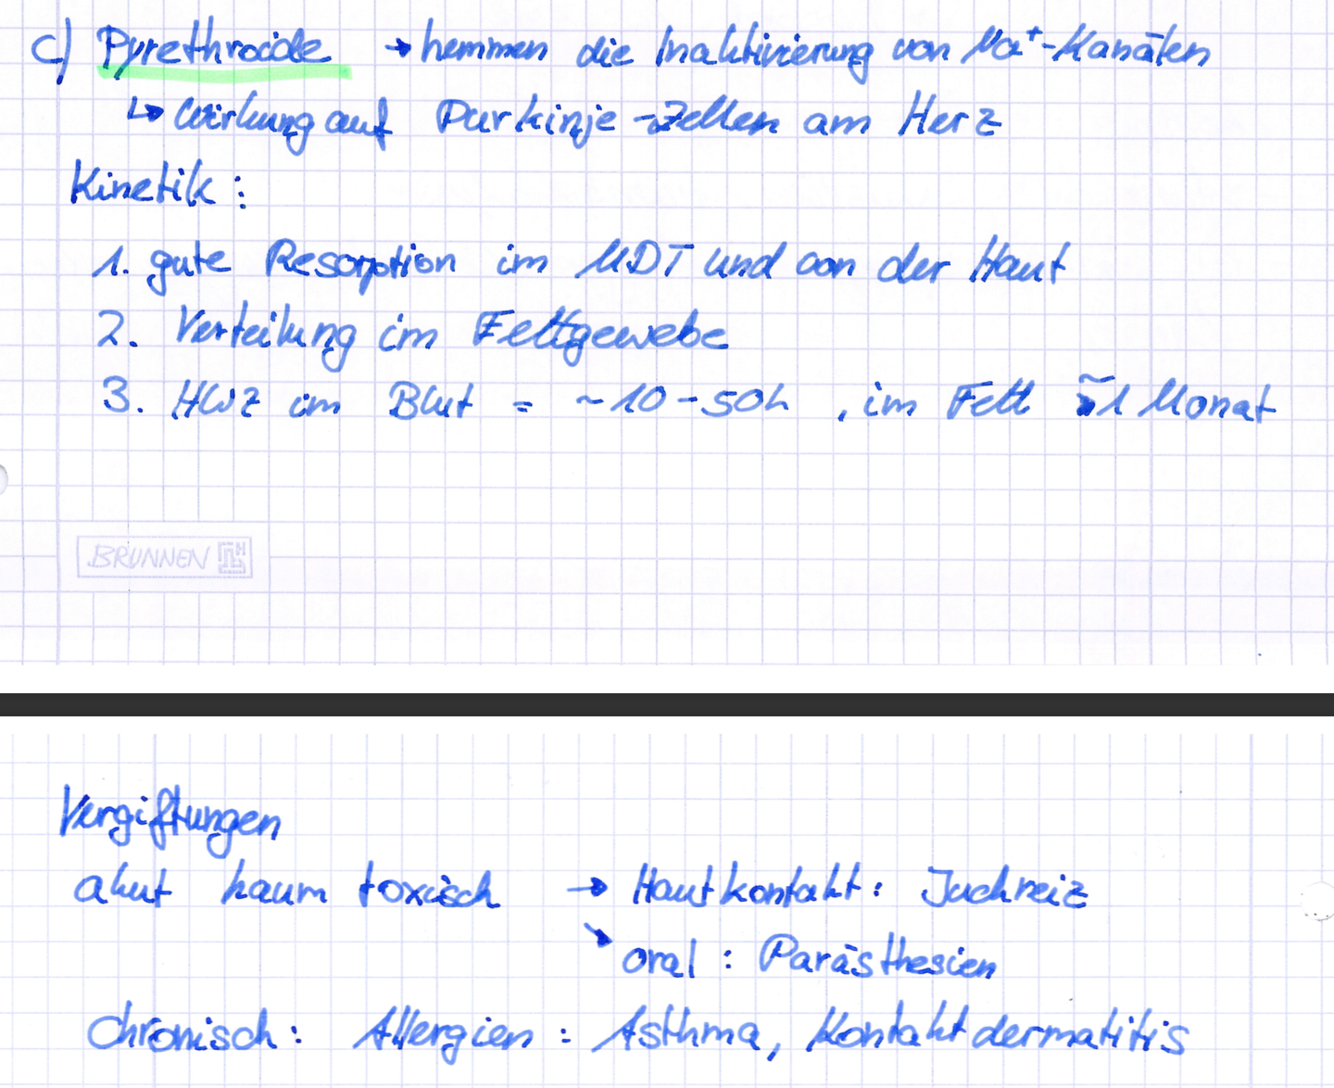 c) Pyrethroide → hemmen die Inaktivierung von Na⁺-Kanälen
↳ Wirkung auf Purkinje-Zellen am Herz
Kinetik:
1. gute Resorption im MDT und von der Haut
2. Verteilung im Fettgewebe
3. HWZ im Blut = ~10-50h, im Fett ~1 Monat
BRUNNEN
Vergiftungen
akut kaum toxisch → Hautkontakt: Juckreiz
↘ oral: Parästhesien
Chronisch: Allergien: Asthma, Kontaktdermatitis